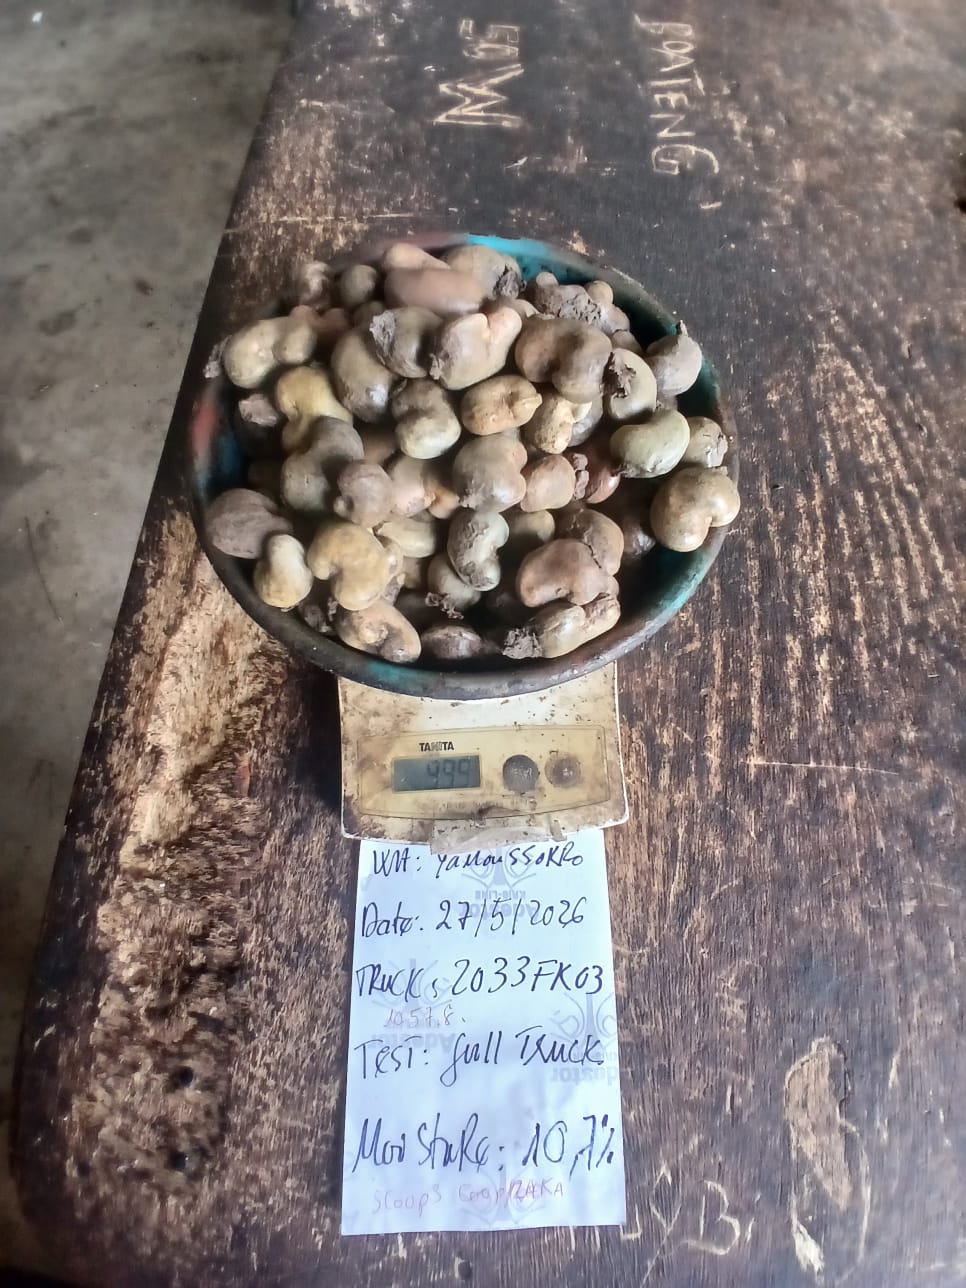 BOATENG
50W
TANITA
999
WH: YaMoussoKRo
Date: 27/5/2026
TRuck: 2033FK03
10578.
TesT: full Truck
MoistuRe: 10,7%
ScoopS
YB